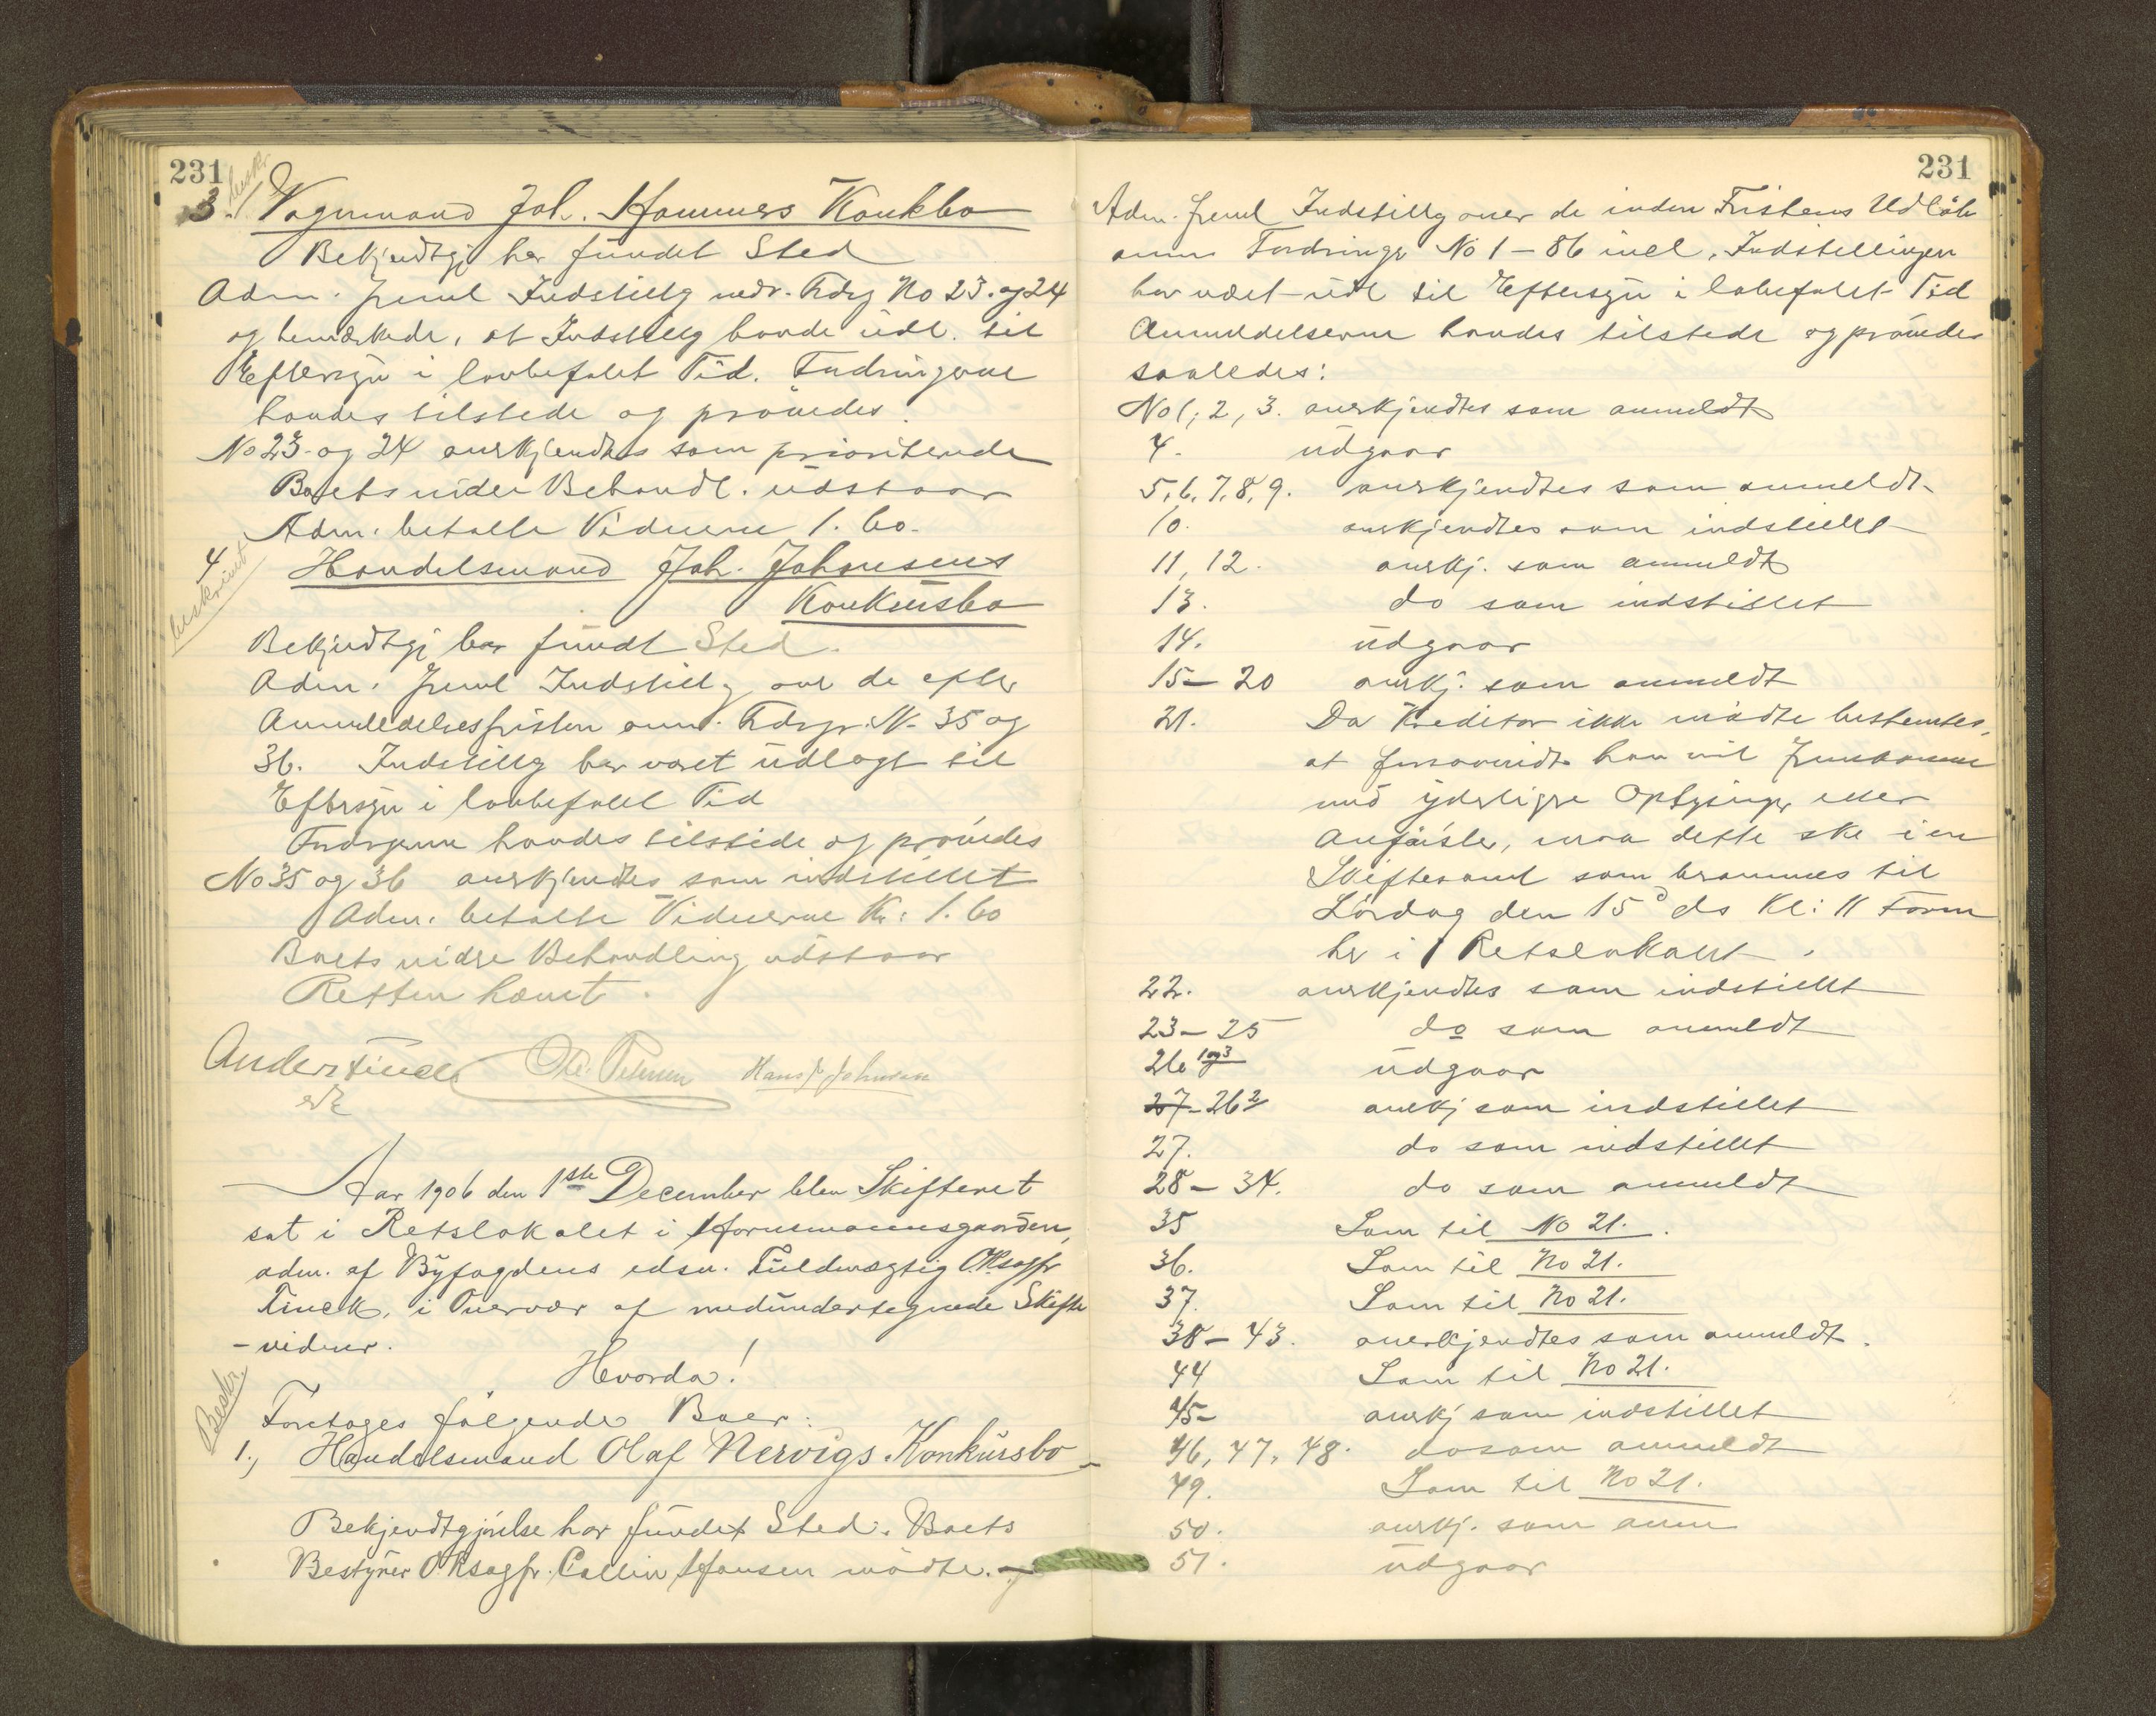 231
beskr
3./ Vognmand Joh. Hammers Konkbo
Bekjendtgj har fundet Sted
Adm. freml Indstillg vedr. Fdrg No 23. og 24
og bemærkede, at Indstillg havde udl. til
Eftersyn i lovbefalet Tid. Fordringerne
havdes tilstede og prøvedes.
No 23. og 24 anerkjendtes som prioriterede
Boets videre Behandl. udstaar
Adm. betalte Vidnerne 1.60.
4
beskrevet
Handelsmand Joh. Johnsens
Konkursbo
Bekjendtgj har fundt Sted.
Adm. freml Indstillg over de efter
Anmeldelsesfristen anm. Fdrgr. No 35 og
36. Indstillg har været udlagt til
Eftersyn i lovbefalet Tid
Fordrgerne havdes tilstede og prøvedes
No 35 og 36 anerkjendtes som indstillet
Adm. betalte Vidnerne Kr: 1.60
Boets vidre Behandling udstaar
Retten hævet.
Anders Finck
Hans J Johnsen
Aar 1906 den 1ste December blev Skifteret
sat i Retslokalet i Hornemannsgaarden,
adm. af Byfogdens edsv. Fuldmægtig ORsagfr
Finck, i Overvær af medundertegnede Skifte
-vidner.
Hvorda!
Beskr
Foretoges følgende Boer:
1., Handelsmand Olaf Nervigs Konkursbo
Bekjendtgjørelse har fundet Sted. Boets
Bestyrer ORsagfr. Collin Hansen mødte.
231
Adm. freml Indstillg over de inden Fristens Udløb
anm Fordringr No 1 – 86 incl. Indstellingen
har været udl til Eftersyn i lovbefalet Tid
Anmeldelserne havdes tilstede og prøvedes
saaledes:
No 1, 2, 3. anerkjendtes som anmeldt
4. udgaar
5, 6, 7, 8, 9. anerkjendtes som anmeldt.
10. anerkjendtes som indstillet
11, 12. anerkj. som anmeldt
13. do som indstillet
14. udgaar
15 – 20 anerkj. som anmeldt
21. Da Kreditor ikke mødte bestemtes,
at forsaavidt han vil fremkomme
med yderligre Oplysningr eller
Anførsler, maa dette ske i en
Skiftesaml som berammes til
Lørdag den 15d ds Kl: 11 Form
her i Retslokalet.
22. anerkjendtes som indstillet
23 – 25 do som anmeldt
26 1 og 3 udgaar
27 – 26 2 anerkj som indstillet
27. do som indstillet
28 – 34. do som anmeldt
35 Som til No 21.
36. Som til No 21.
37. Som til No 21.
38 – 43. anerkjendtes som anmeldt.
44 Som til No 21.
45 – anerkj som indstillet
46, 47, 48. do som anmeldt
49. Som til No 21.
50. anerkj. som anm
51. udgaar